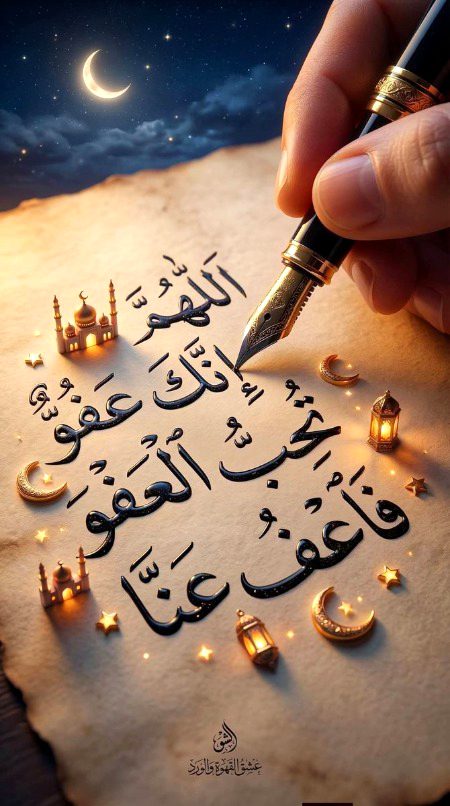 اللَّهُمَّ
إِنَّكَ عَفُوٌّ
تُحِبُّ الْعَفْوَ
فَاعْفُ عَنَّا
عشق القهوة والورد